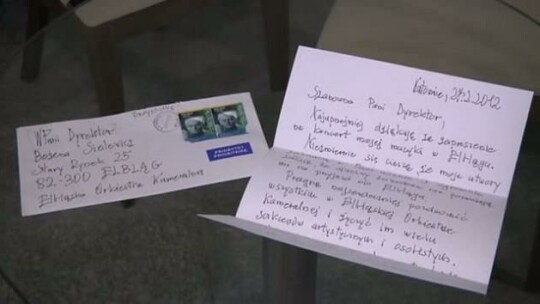 WPani Dyrektor
Bożena Sielewicz
Stary Rynek 25
82-300 ELBLĄG
Elbląska Orkiestra Kameralna
PRIORYTET
PRIORITAIRE
Katowice, 27.2.2012
Szanowna Pani Dyrektor,
Najuprzejmiej dziękuję za zaproszenie
na koncert mojej muzyki w Elblągu.
Niezmiernie się cieszę, że moje utwory
Pragnę najserdeczniej pozdrowić
wszystkich w Elbląskiej Orkiestrze
Kameralnej i życzyć im wielu
sukcesów artystycznych i osobistych.